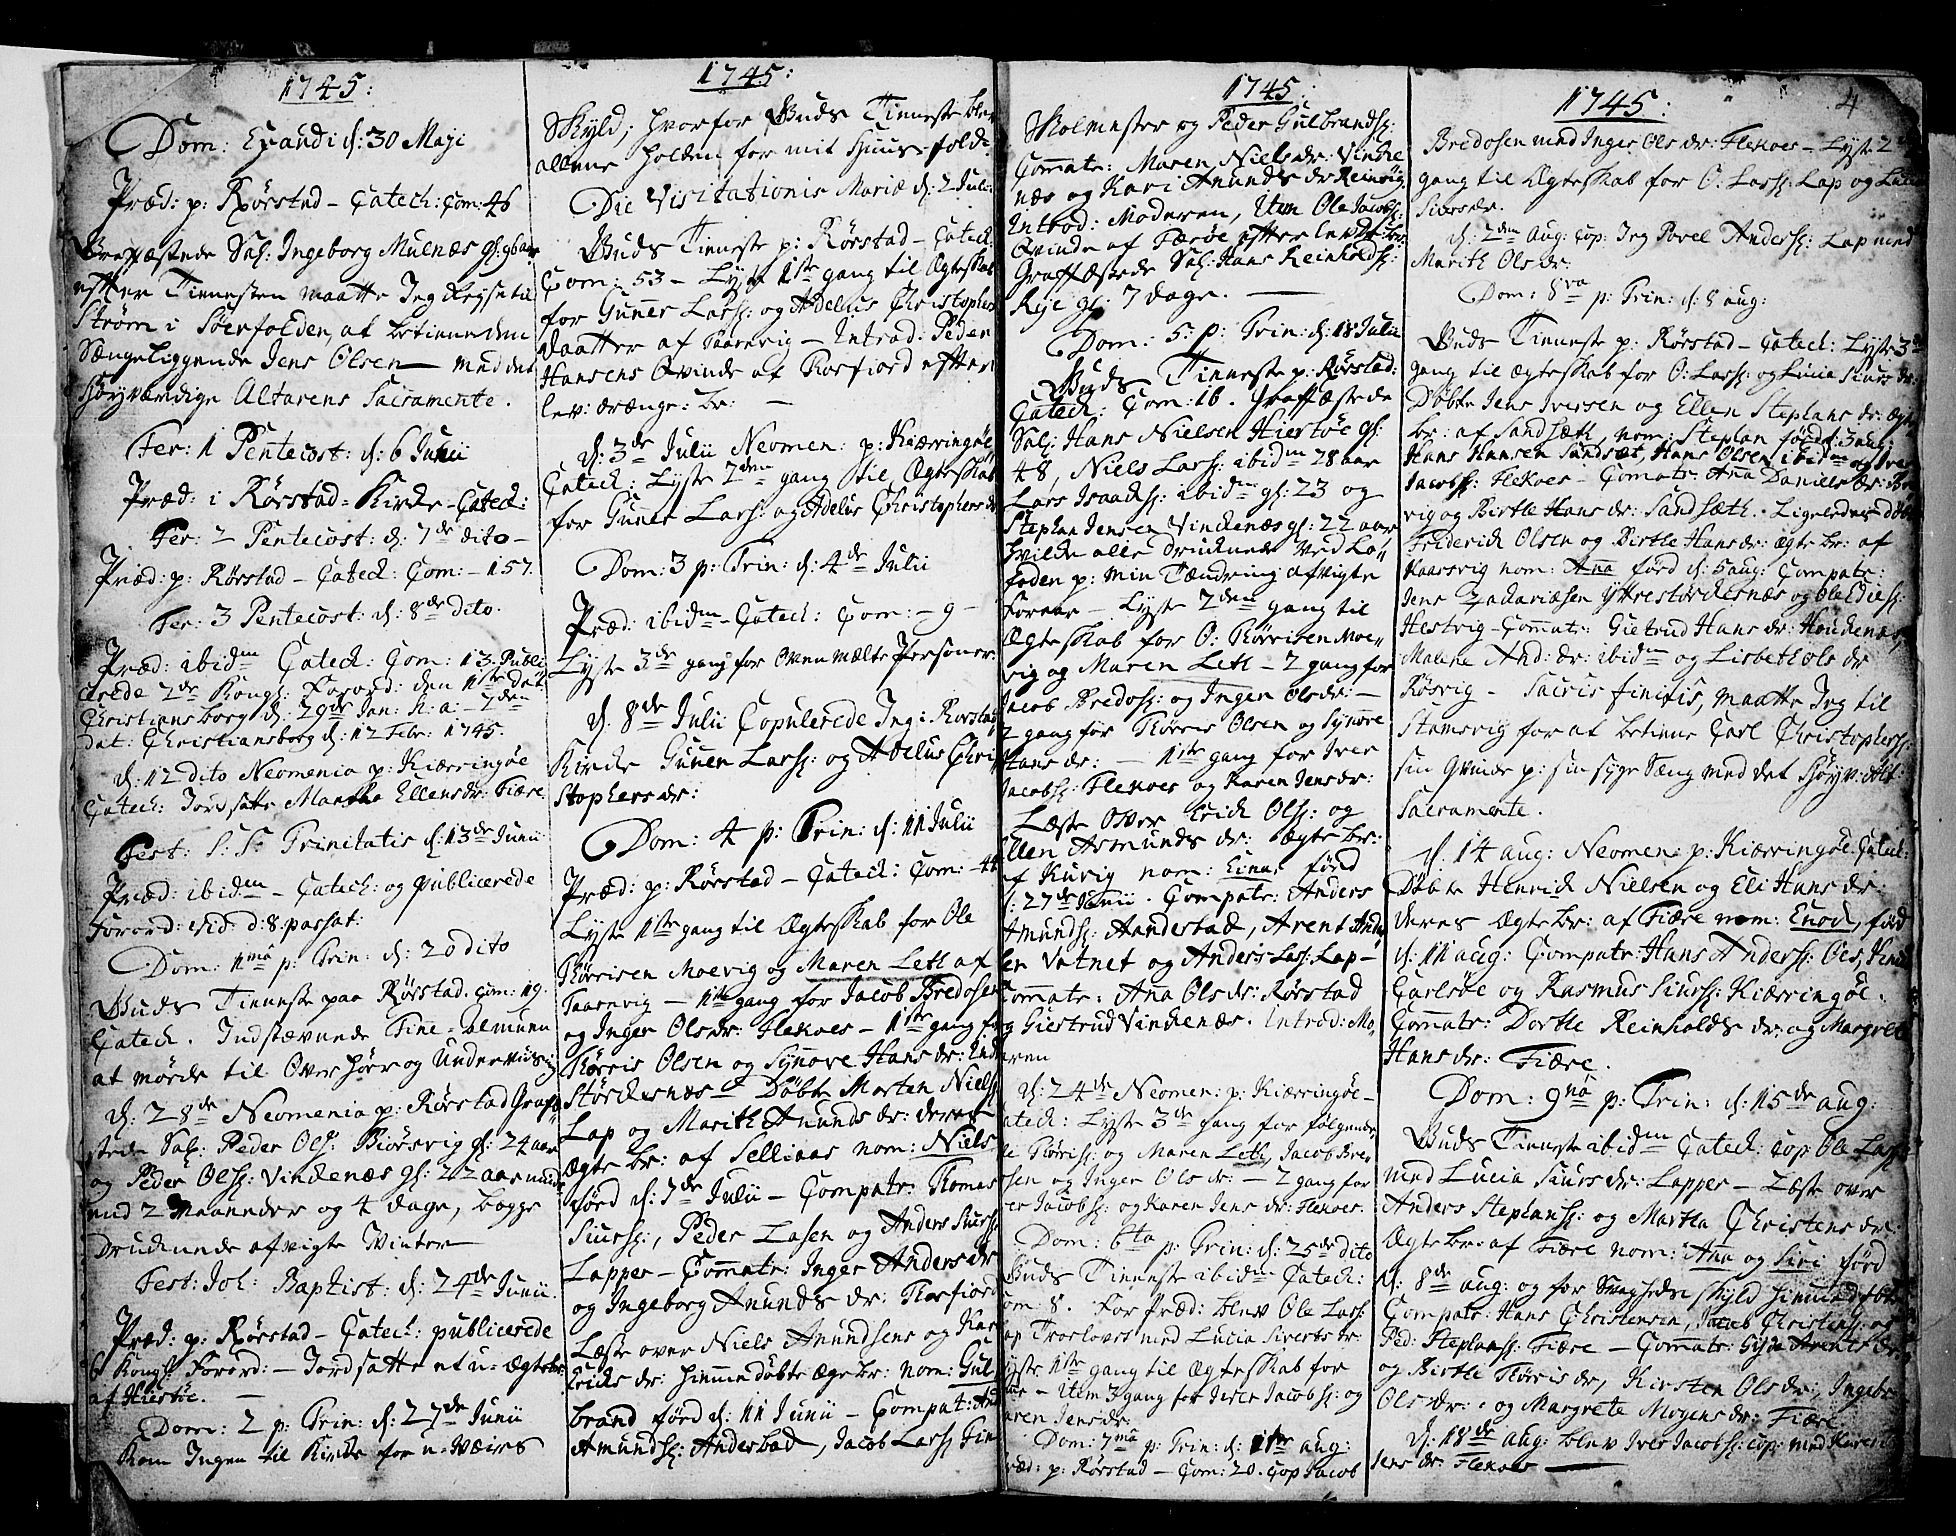 1745:
Dom: Exaudi d: 30 Maji
Præd: p: Rörstad - Catech: Com: 46
Graffæstede Sal: Ingeborg Mulnæs gl: 96 aar
efter Tienesten maatte Jeg Reyse til
Ström i Söerfolden, at betiene den
Sængeliggende Jens Olsen - med det
Høyværdige Altarens Sacramente.
Fer: 1 Pentecost: d: 6 Junii
Præd: i Rörstad-Kirke - Catech:
Fer: 2 Pentecost: d: 7de dito -
Præd: p: Rörstad - Catech: Com: - 157.
Fer: 3 Pentecost: d: 8de dito.
Præd: ibidm Catech: Com: 13. Publi
cerede 2de Kongl: Forord: den 1ste dat
Christiansborg d: 29de Jan: h: a: - 2den
dat: Christiansborg d: 12 Febr: 1745.
d: 12 dito Neomenia p: Kierringöe
Catech: Jordsatte Marthe Ellensdr: Fiære.
Fest: S: S: Trinitatis d: 13de Junii
Præd: ibidm - Catech: og publicerede
Forord: vid: d: 8 passat:
Dom: 1mâ p: Trin: d: 20 dito
Guds Tieneste paa Rörstad. Com: 19.
Catech. Indstævnede Fine-Almuen
at møede til Overhør og Underviisn:
d: 28de Neomenia p: Rörstad Graffæ
stede Sal: Peder Ols: Biörsvig gl: 24 aar
og Peder Olss: Vindenæs gl: 22 aar
2 Maaneder og 4 dage, begge
Druknede afvigte Vinter
Fest: Joh: Baptist: d: 24de Junii.
Præd: p: Rörstad - Catech: publicerede
6 Kongl: Forord: - Jordsatte et u-ægte
af Hiestöe. -
Dom: 2 p: Trin: d: 27de Junii
Kom Ingen til Kirke for u-Veirs
1745:
Skyld, hvorfor Guds Tieneste blev
allene holden for mit Huus-folk.
Die Visitationis Mariæ d: 2 Julii
Guds Tieneste p: Rörstad - Catech:
Com: 53 - Lyste 1ste gang til Ægteskab
for Gunner Larss: og Adelus Christophers
Daatter af Taarnvig - Introd: Peder
Hansens Qvinde af Torfiord efter
lev: drænge: br: -
d: 3de Julii Neomen: p: Kierringöe
Catech: Lyste 2den gang til Ægteskab
for Gunner Larss: og Adelus Christophersdr
Dom: 3 p: Trin: d: 4de Julii
Præd: ibidm - Catech: Com: - 9 -
Lyste 3de gang for ovenmælte Personer.
d: 8de Julii Copulerede Jeg i Rorstad
Kirke Gunner Larss: og Adelus Chri
stophersdr:
Dom: 4 p: Trin: d: 11 Julii
Præd: p: Rörstad - Catech: Com: - 44
Lyste 1ste gang til Ægteskab for Ole
Tørrisen Moevig og Maren Letl af
Taarnvig - 1ste gang for Jacob Bredosen
og Inger Olsdr: Flekoes - 1ste gang for
Tørris Olsen og Synnove Hansdr: Indr
Størkesnæs - Döbte Morten Niels
Lap og Marith Anundsdr: deres
ægte br: af Selliaas nom: Niels
förd d: 7de Julii - Compatr: Thomas
Siurss:, Peder Lasen og Anders Siurss:
Lapper - Commatr: Inger Andersdr
og Ingeborg Anundsdr: Torfiord
Læste over Niels Anundsens og Kar
Eriksdr: hiemmedöbte ægte br: nom: Gul
brand förd d: 11 Junii - Compat: And
Amundss: Anderbad, Jacob Larss: Fin
1745:
Skolmester og Peder Gulbrandss:
Commatr: Maren Nielsdr: Vinke
næs og Kari Anundsdr Reinsvig.
Introd: Moderen, Item Ole Jacobss:
Qvinde af Færöe efter lev: br:
Graffæstede Sal: Hans Reinholdss:
Rije gl: 7 dage. -
Dom: 5: p: Trin: d: 18 Julii
Guds Tieneste p: Rörstad:
Catech: Com: 16. Graffæstede
Sal: Hans Nielsen Hiestöe gl:
48, Niels Larss: ibidm 28 aar
Lars Isaachss: ibidm gl: 23 og
Stephan Jensen Vindenæs gl: 22 aar
hvilke alle druknede ved Lo
foden p: min Tændring afvigte
Foraar - Lyste 2den gang til
Ægteskab for O: Tørrisen Moe
vig og Maren Letl - 2 gang for
Jacob Bredoss: og Inger Olsdr: -
2 gang för Tørris Olsen og Synnove
Hansdr: - 1ste gang for Iver
Jacobss: Flekoes og Karen Jensdr:
Læste over Erich Olss: og
Ellen Asmundsdr: ægte br:
af Kurig nom: Einar förd
d: 27de Junii. Compatr: Anders
Amundss: Aandestad, Arent
Vatnet og Anders Lass: Lap -
Commatr: Ana Olsdr: Rörstad
og Giestrud Vindenæs. Introd: Mo
deren
d: 24de Neomen: p: Kierringöe -
Catech: Lyste 3de gang for følgende
Ole Tørriss: og Maren Letl, Jacob Bre
dosen og Inger Olsdr: - 2 gang for
Iver Jacobss: og Karen Jensdr: Flekoes.
Dom: 6ta p: Trin: d: 25de dito
Guds Tieneste ibidm Catech:
Com: 8. For Præd: blev Ole Larss:
Lap Trolovet med Lucia Sivertsdr:
Lyste 1ste gang til Ægteskab for
- Item 3 gang for Iver Jacobss: og
Karen Jensdr:
Dom: 7mâ p: Trin: d: 1ste aug:
Præd: p: Rörstad - Com: 20. Cop Jacob
1745:
4
Bredosen med Inger Olsdr: Flekoes - Lyste 2den
gang til Ægteskab for O: Larss: Lap og Lucia
Siversdr.
d: 2den Aug: Cop: Jeg Povel Anderss: Lap med
Marith Olsdr:
Dom: 8va p: Trin: d: 8 aug:
Guds Tieneste p: Rørstad - Catech: Lyste 3de
gang til Ægteskab for O: Larss: og Lucia Siursdr:
Döbte Jens Iversen og Ellen Stephansdr: ægte
br: af Sandsæth, nom: Stephan förd d: 3 aug:
Hans Hansen Sandsæt, Hans Olsen ibidm og Iver
Jacobss: Flekoes - Commatr: Ana Danielsdr:
vig og Birtle Hansdr: Sandsæth. Ligeledes döbt
Friderich Olsen og Birtle Hansdr: ægte br: af
Kaarsvig nom: Ana förd d: 5 aug: Compatr:
Jens Zachariæsen Yttrestørkesnæs og Ole
Hestvig - Commatr: Gietrud Hansdr:
Malene And:dr: ibidm og Lisbeth Olsdr
Rösvig - Sacris finitis, maatte Jeg til
Stamsvig for at betiene Carl Christopherss:
sin Qvinde p: sin syge Sæng med det Høyv: Alt:
Sacramente.
d: 14 aug: Neomen: p: Kierringöe Catech:
Döbte Henrich Nielsen og Eli Hansdr:
deres Ægte br: af Fiære nom: Enod, förd
d: 11 aug: Compatr: Hans Anderss: Oes,
Carlsöe og Rasmus Siurss: Kierringöe.
Commatr: Dortle Reinholdsdr: og Margrete
Hansdr: Fiære.
Dom: 9nâ p: Trin: d: 15de aug:
Guds Tieneste ibidm Catech: Cop Ole Larss
med Lucia Siursdr: Lapper - Læste over
Anders Stephanss: og Martha Christensdr:
Ægte br: af Fiære nom: Ana og Siri förd
d: 8de aug: og for Svaghedens skyld hiemmedöbte
Compatr: Hans Christensen, Jacob Christenss: og
Ped: Stephanss: Fiære - Commatr: Gisle Arentsdr:
og Birtle Tørrisdr, Kirsten Olsdr:, Ingebr:
Olsdr: og Margrete Mogensdr: Fiære.
d: 18de aug: blev Iver Jacobss: cop: med Karen
Jensdr: Flekoes -